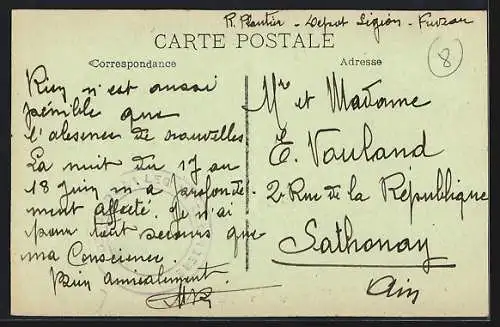 R. Plantin - Depot Légion - Fuveau
CARTE POSTALE
8
Correspondance
Adresse
Rien n'est aussi
pénible que
l'absence de nouvelles
La nuit du 17 au
18 juin m'a profonde-
ment affecté. Je n'ai
pour tout secours que
ma Conscience.
Bien amicalement
Mr et Madame
E. Vauland
2 Rue de la République
Sathonay
Ain